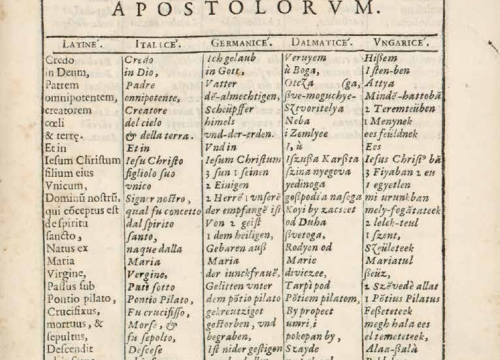 APOSTOLORVM.
LATINE'. ITALICE'. GERMANICE'. DALMATICE'. VNGARICE'.
Credo Credo Ich gelaub Veruyem Hißem
in Deum, in Dio, in Gott, ù Boga, Isten-ben
Patrem Padre Vatter Otcza (ga, Attya
omnipotentem, omnipotente, dé-almechtigen, sve-moguchye- Mindé-hattobā
creatorem Creatore Scheüpffer Sztvoritelya 2 Teremteüben
cœli del cielo himels Neba 1 Menynek
& terrę. & della terra. vnd-der-erden. i Zemlyee ees feüldnek
Et in Et in Vnd in I, ù Ees
Iesum Christum Iesu Christo Iesum Christum Iszußa Karſta Iesus Chriſ° bā
filium eius figliolo suo 3 ſun 1 ſeinen szina nyegova 3 Fiyaban 2 eu
Vnicum, vnico 2 Einigen yedinoga 1 egyetlen
Dominū noſtrū, Signor noſtro, 2 Herrē 1 vnſerē goſpodina naſega mi urunkban
qui cōceptus eſt qual fu concetto der empfangē iſt Koyi by zacseet mely-fogātateek
de ſpiritu dal ſpirito Von 2 geiſt od Duha 2 lelek-teul
ſancto, ſanto, 1 dem heiligen, ſvetoga, 1 ſzent,
Natus ex naque dalla Gebaren auß Rodyen od Szeületeek
Maria Maria Maria Marie Mariatul
Virgine, Vergine, der iunckfrauē, diviczee, ßeüz,
Paſſus ſub Patì ſotto Gelitten vnter Tarpì pod 2 Szēvedē allat
Pontio pilato, Pontio Pilato, dem pōtio pilato Pōtiem pilatom, 1 Pōtius Pilatus
Crucifixus, Fu crucifiſſo, gekreutziget By propeet Feßeteteek
mortuus, & Morſe, & geſtorben, vnd umri, i megh hala ees
ſepultus, fu ſepolto, begraben, pokepan by, el temeteteek,
Deſcendit Deſceſe Iſt nider geſtigen Szayde Alaa-ſzālà